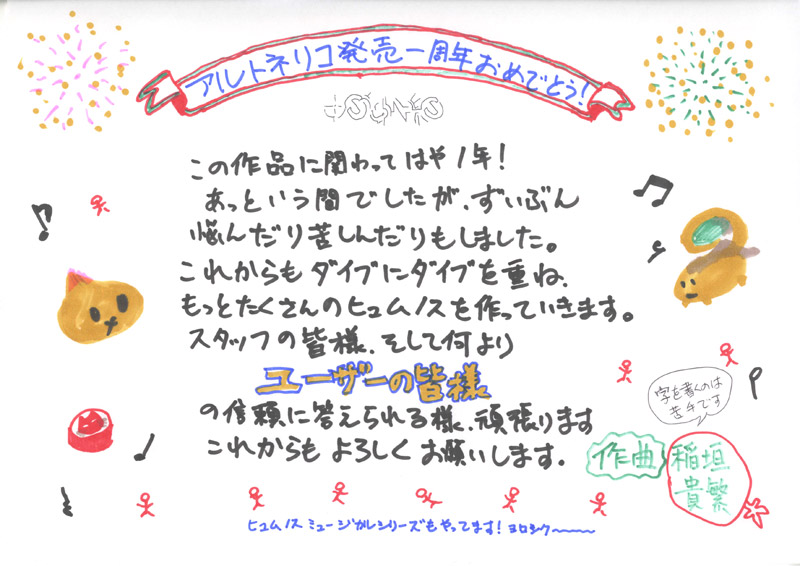 アルトネリコ発売一周年おめでとう!
この作品に関わってはや1年!
あっという間でしたが、ずいぶん
悩んだり苦しんだりもしました。
これからもダイブにダイブを重ね、
もっとたくさんのヒュムノスを作っていきます。
スタッフの皆様、そして何より
ユーザーの皆様
の信頼に答えられる様、頑張ります
これからもよろしくお願いします。
字を書くのは
苦手です
作曲
稲垣
貴繁
ヒュムノスミュージカルシリーズもやってます!ヨロシク〜〜〜